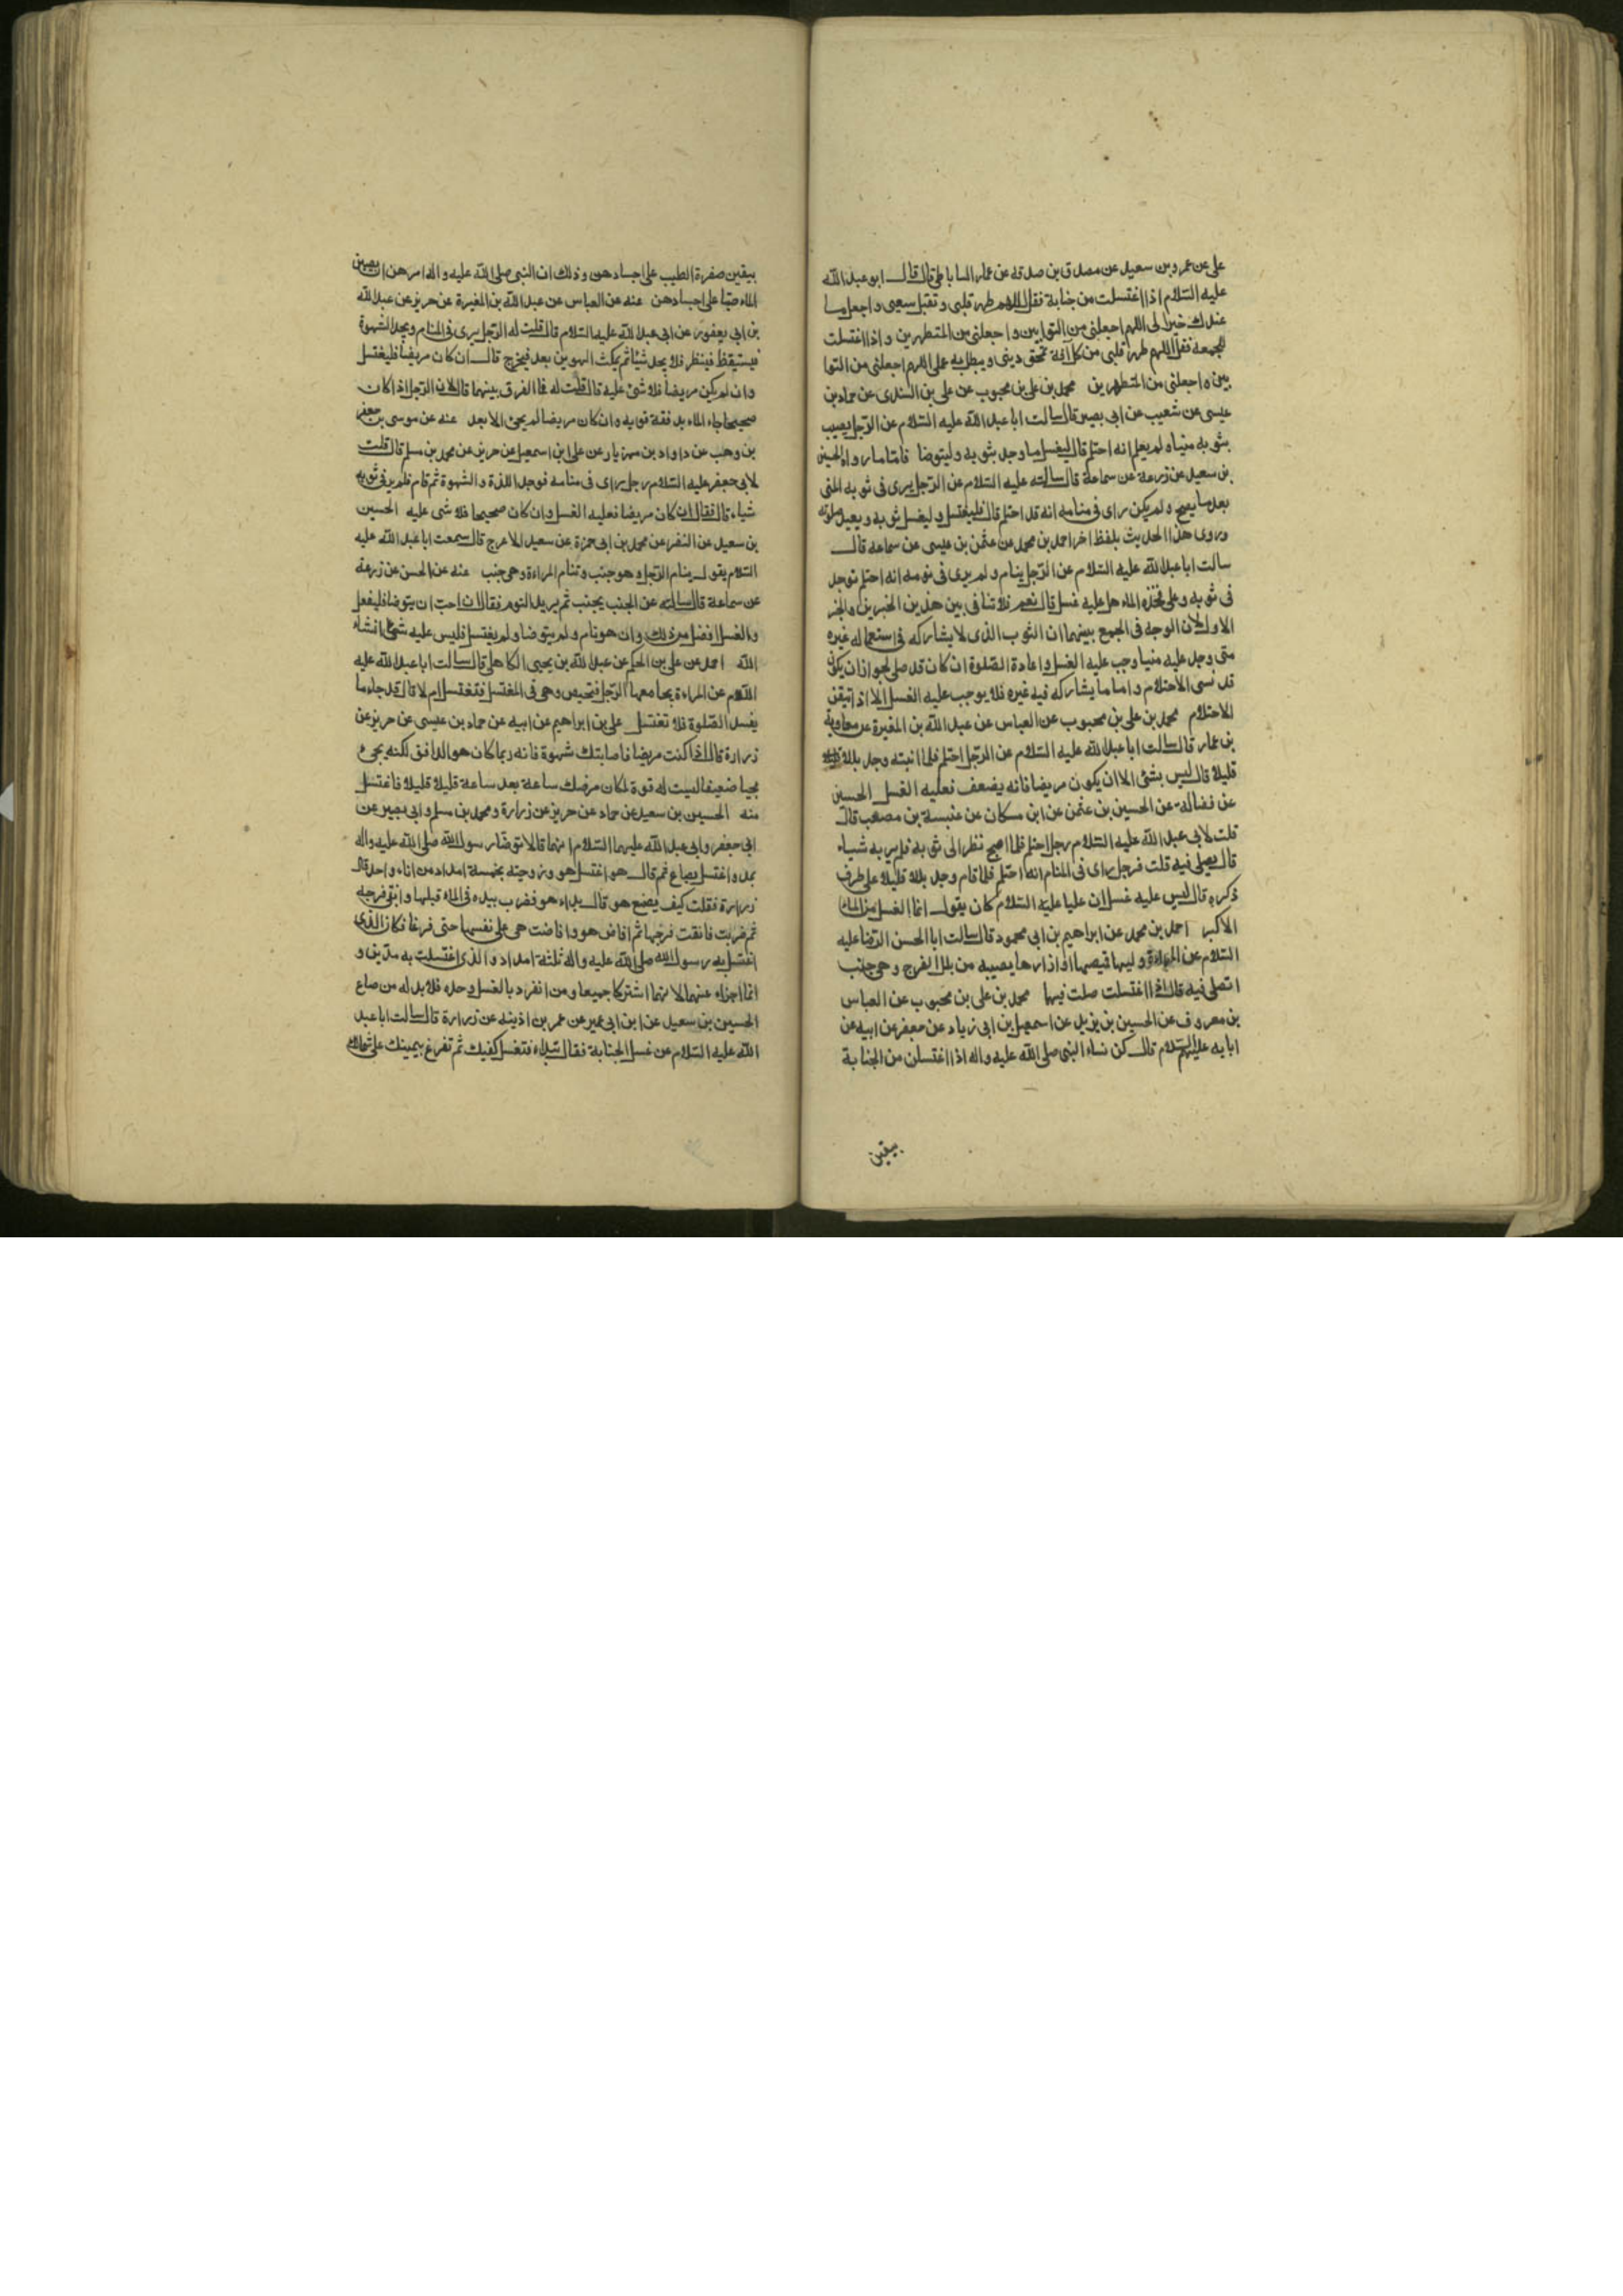 على عن عمرو بن سعيد عن مصدق بن صدقة عن عمار الساباطى قال قال ابو عبد الله
عليه السّلام اذا اغتسلت من جنابة فقل اللهم طهر قلبى و تقبل سعيى و اجعل ما
عندك خيرا لى اللهم اجعلنى من التوابين و اجعلنى من المتطهرين و اذا اغتسلت
للجمعة فقل اللهم طهر قلبى من كل آفة تمحق دينى و يبطل به عملى اللهم اجعلنى من التوا
بين و اجعلنى من المتطهرين محمد بن على بن محبوب عن على بن السندى عن حماد بن
عيسى عن شعيب عن ابى بصير قال سالت ابا عبد الله عليه السّلام عن الرّجل يصيب
بثوبه منيا و لم يعلم انه احتلم قال ليغسل ما وجد بثوبه و ليتوضا فامّا ما رواه الحسين
بن سعيد عن زرعة عن سماعة قال سالته عليه السّلام عن الرّجل يرى فى ثوبه المنى
بعد ما يصبح و لم يكن راى فى منامه انه قد احتلم قال فليغتسل و ليغسل ثوبه و يعيد صلوته
و روى هذا الحديث بلفظ اخر احمد بن محمد عن عثمن بن عيسى عن سماعة قال
سالت ابا عبد الله عليه السّلام عن الرّجل ينام و لم يرى فى نومه انه احتلم فوجد
فى ثوبه و على فخذه الماء هل عليه غسل قال نعم فلا تنافى بين هذين الخبرين و الخبر
الاول لان الوجه فى الجمع بينهما ان الثوب الذى لا يشاركه فى استعماله غيره
متى وجد عليه منيا وجب عليه الغسل و اعادة الصّلوة ان كان قد صلى لجواز ان يكون
قد نسى الاحتلام و اما ما يشاركه فيه غيره فلا يوجب عليه الغسل الا اذا تيقن
الاحتلام محمد بن على بن محبوب عن العباس عن عبد الله بن المغيرة عن معاوية
بن عمار قال سالت ابا عبد الله عليه السّلام عن الرّجل احتلم فلما انتبه وجد بللا
قليلا قال ليس بشئ الا ان يكون مريضا فانه يضعف فعليه الغسل الحسين
عن فضالة عن الحسين بن عثمن عن ابن مسكان عن عنبسة بن مصعب قال
قلت لابى عبد الله عليه السّلام رجل احتلم فلما اصبح نظر الى ثوبه فلم ير به شياء
قال يصلى فيه قلت فرجل راى فى المنام انه احتلم فلما قام وجد بللا قليلا على طرف
ذكره قال ليس عليه غسل ان عليا عليه السّلام كان يقول انما الغسل من الماء
الاكبر احمد بن محمد عن ابراهيم بن ابى محمود قال سالت ابا الحسن الرّضا عليه
السّلام عن المراة وليها قميصها او ازارها يصيبه من بلل الفرج و هى جنب
اتصلى فيه قال اذا اغتسلت صلت فيها محمد بن على بن محبوب عن العباس
بن معروف عن الحسين بن يزيد عن اسمعيل بن ابى زياد عن جعفر عن ابيه عن
ابايه عليهم السّلام قال كن نساء النبى صلى الله عليه و اله اذا اغتسلن من الجنابة
يبقين
يبقين صفرة الطيب على اجسادهن و ذلك ان النبى صلى الله عليه و اله امرهن ان يصببن
الماء صبّا على اجسادهن عنه عن العباس عن عبد الله بن المغيرة عن حريز عن عبد الله
بن ابى يعفور عن ابى عبد الله عليه السّلام قال قلت له الرّجل يرى فى المنام و يجد الشهوة
فيستيقظ فينظر فلا يجد شيئا ثم يمكث الهوين بعد فيخرج قال ان كان مريضا فليغتسل
و ان لم يكن مريضا فلا شئ عليه قال قلت له فما الفرق بينهما قال لان الرّجل اذا كان
صحيحا جاء الماء بدفقة قوية و ان كان مريضا لم يجئ الا بعد عنه عن موسى بن جعفر
بن وهب عن داود بن مهزيار عن على ابن اسمعيل عن حريز عن محمد بن مسلم قال قلت
لابى جعفر عليه السّلام رجل راى فى منامه فوجد اللذة و الشهوة ثم قام فلم ير فى ثوبه
شياء قال فقال ان كان مريضا فعليه الغسل و ان كان صحيحا فلا شى عليه الحسين
بن سعيد عن النضر عن محمد بن ابى حمزة عن سعيد الاعرج قال سمعت ابا عبد الله عليه
السّلام يقول ينام الرّجل و هو جنب و تنام المراءة و هى جنب عنه عن الحسن عن زرعة
عن سماعة قال سالته عن الجنب يجنب ثم يريد النوم فقال ان احبّ ان يتوضا فليفعل
و الغسل افضل من ذلك و ان هو نام و لم يتوضا و لم يغتسل فليس عليه شئ انشاء
الله احمد عن على بن الحكم عن عبد الله بن يحيى الكاهلى قال سالت ابا عبد الله عليه
السّلام عن المراءة يجامعها الرّجل فتحيض و هى فى المغتسل فتغتسل ام لا قال قد جاء ما
يفسد الصّلوة فلا تغتسل على بن ابراهيم عن ابيه عن حماد بن عيسى عن حريز عن
زرارة قال اذا كنت مريضا فاصابتك شهوة فانه ربما كان هو الدافق لكنه يجئ
مجيا ضعيفا ليست له قوة لمكان مرضك ساعة بعد ساعة قليلا قليلا فاغتسل
منه الحسين بن سعيد عن حماد عن حريز عن زرارة و محمد بن مسلم و ابى بصير عن
ابى جعفر و ابى عبد الله عليهما السّلام انهما قالا توضّا رسول الله صلى الله عليه و اله
بمد و اغتسل بصاع ثم قال هو اغتسل هو و زوجته بخمسة امداد من اناء واحد قال
زرارة فقلت كيف يصنع هو قال بداء هو فضرب بيده فى الماء قبلها و انقى فرجه
ثم ضربت فانقت فرجها ثم افاض هو و افاضت هى على نفسها حتى فرغا فكان الذى
اغتسل به رسول الله صلى الله عليه و اله ثلثة امداد و الذى اغتسلت به مدّين و
انما اجزاء عنهما لانهما اشتركا جميعا و من انفرد بالغسل وحده فلا بد له من صاع
الحسين بن سعيد عن ابن ابى عمير عن عمر بن اذينه عن زرارة قال سالت ابا عبد
الله عليه السّلام عن غسل الجنابة فقال تبداء فتغسل كفيك ثم تفرغ بيمينك على شمالك